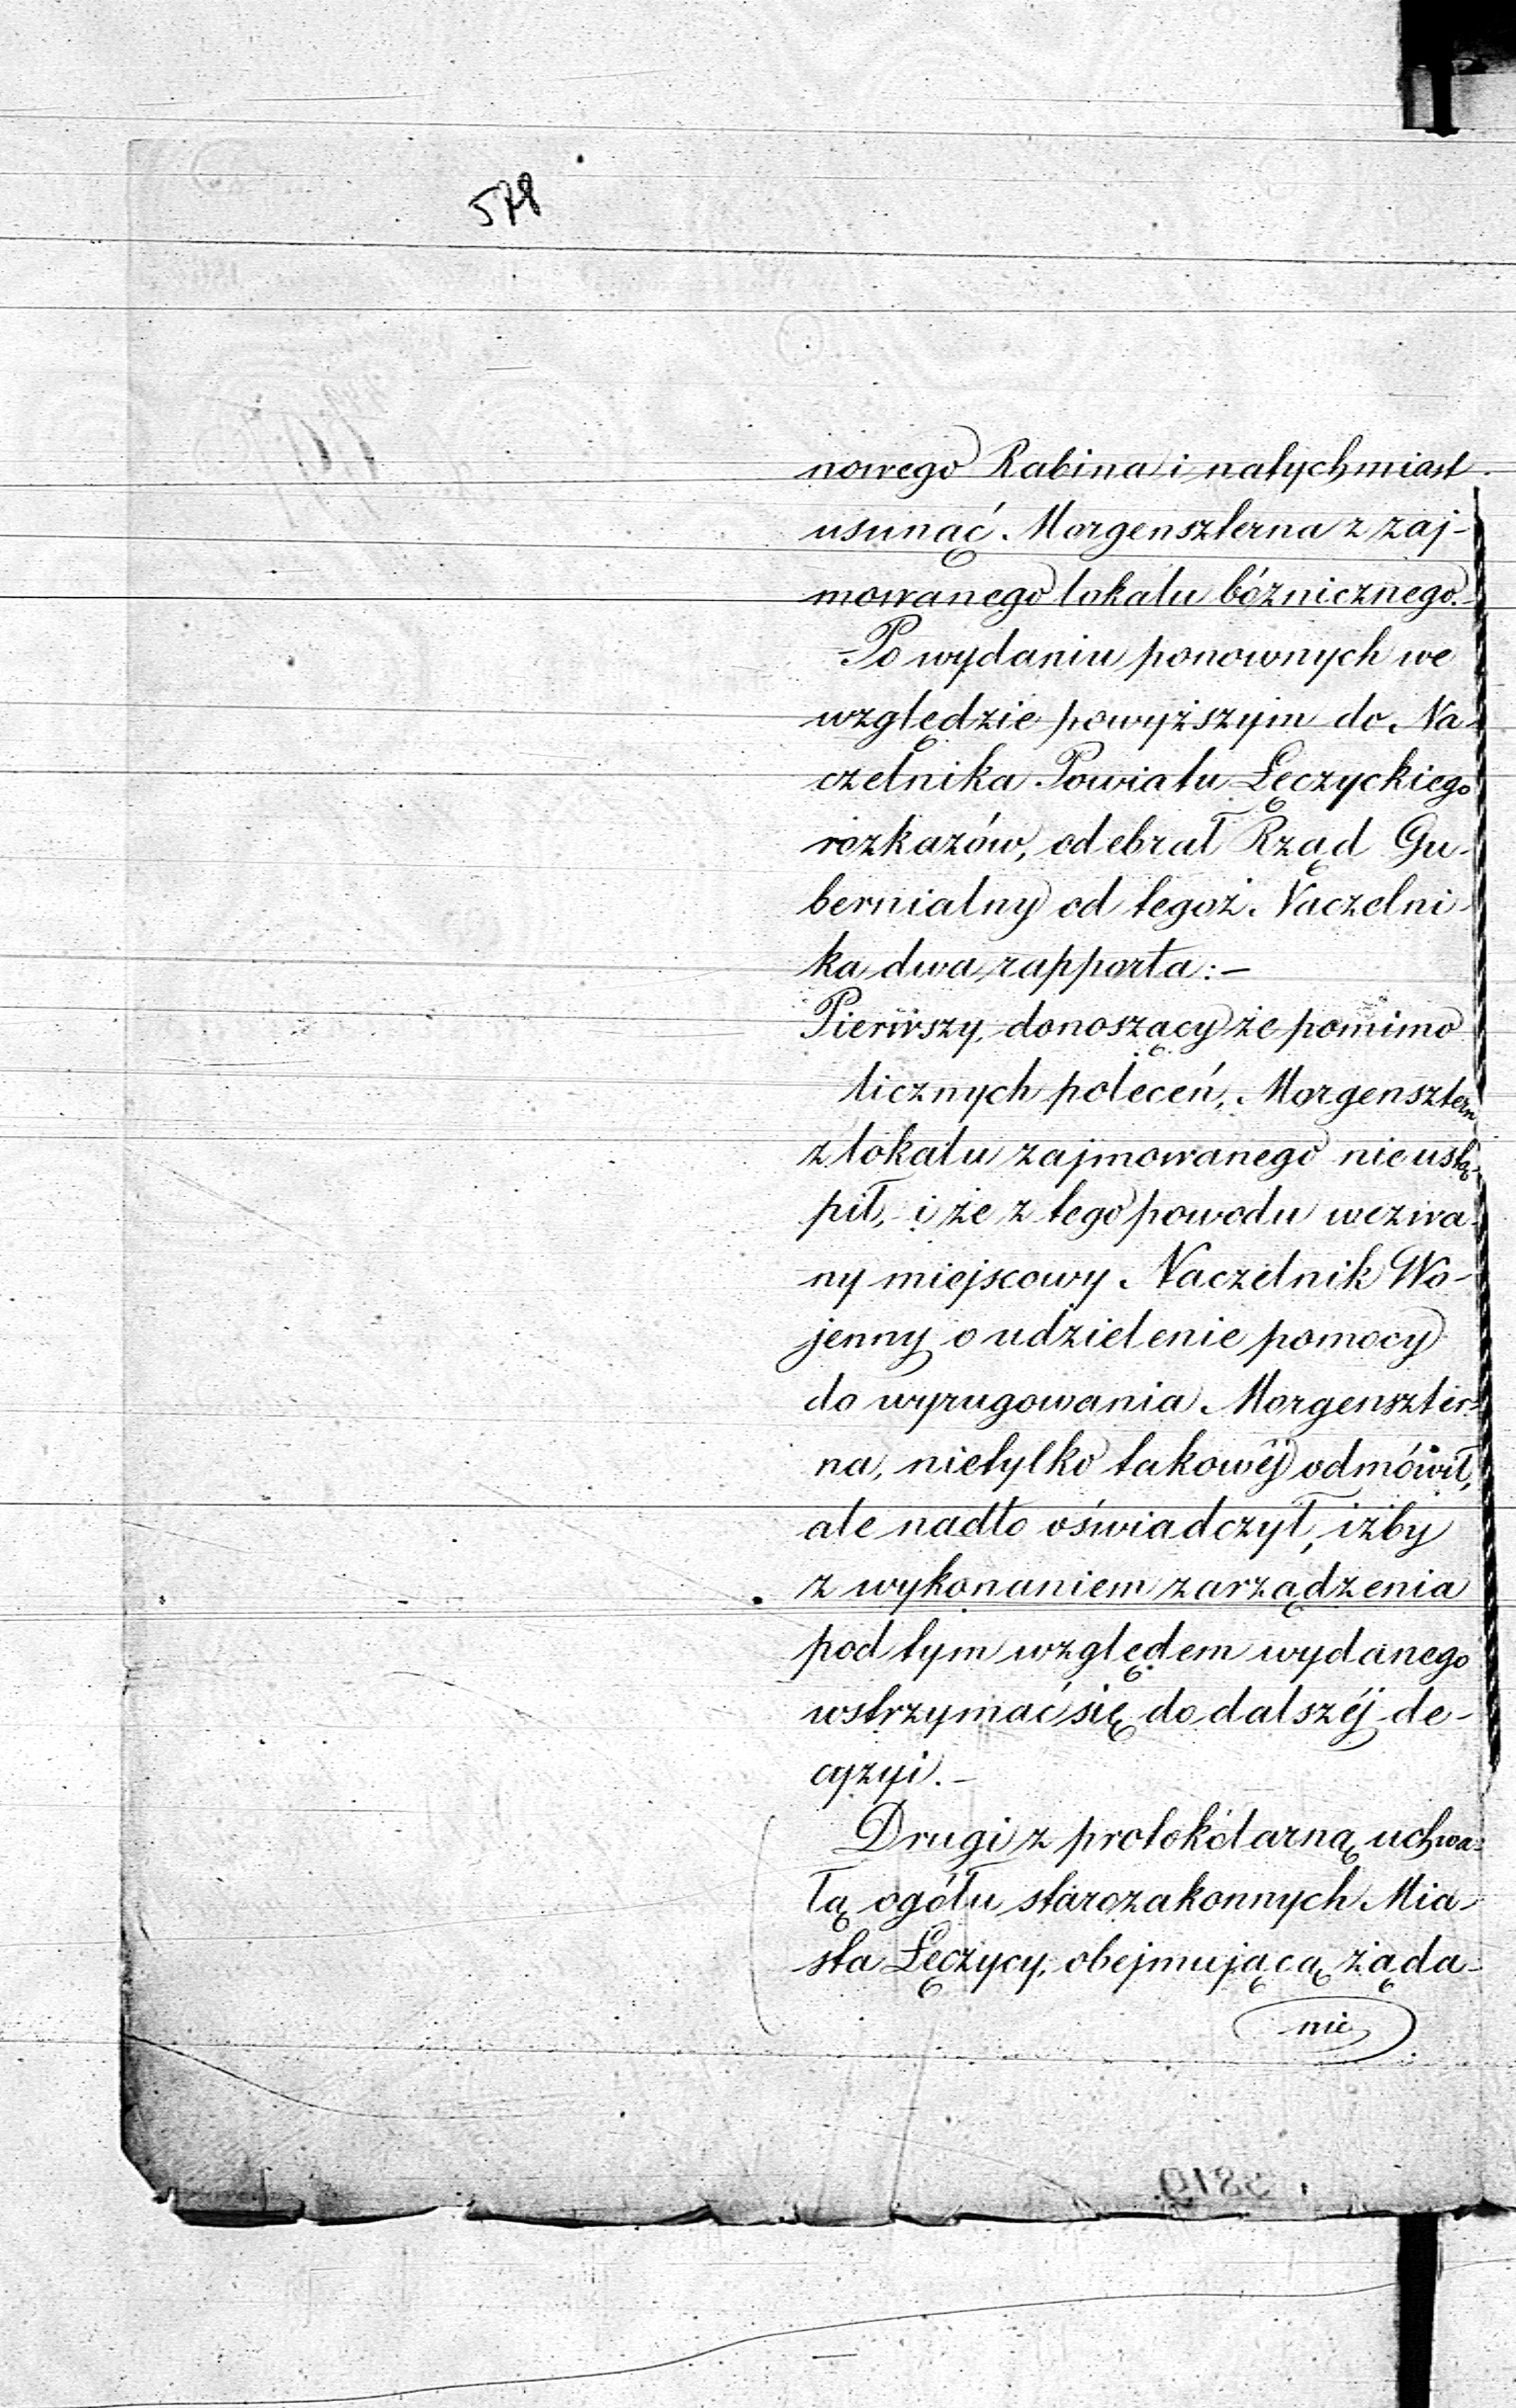 578
nowego Rabina i natychmiast
usunąć Morgenszterna z zaj-
mowanego lokalu bóźnicznego.
-Po wydaniu ponownych we
względzie powyższym do Na-
czelnika Powiatu Łęczyckiego
rozkazów, odebrał Rząd Gu-
bernialny od tegoż Naczelni-
ka dwa rapporta:-
Pierwszy, donoszący że pomimo
licznych poleceń, Morgensztern
z lokalu zajmowanego nie ustą-
pił, i że z tego powodu wezwa-
ny miejscowy Naczelnik Wo-
jenny o udzielenie pomocy
do wyrugowania Morgenszter-
na, nietylko takowéj odmówił,
ale nadto oświadczył, iżby
z wykonaniem zarządzenia
pod tym względem wydanego
wstrzymać się do dalszéj de-
cyzyi.-
Drugi z protokólarną uchwa-
łą ogółu starozakonnych Mia-
sta Łęczycy, obejmującą żąda-
nie